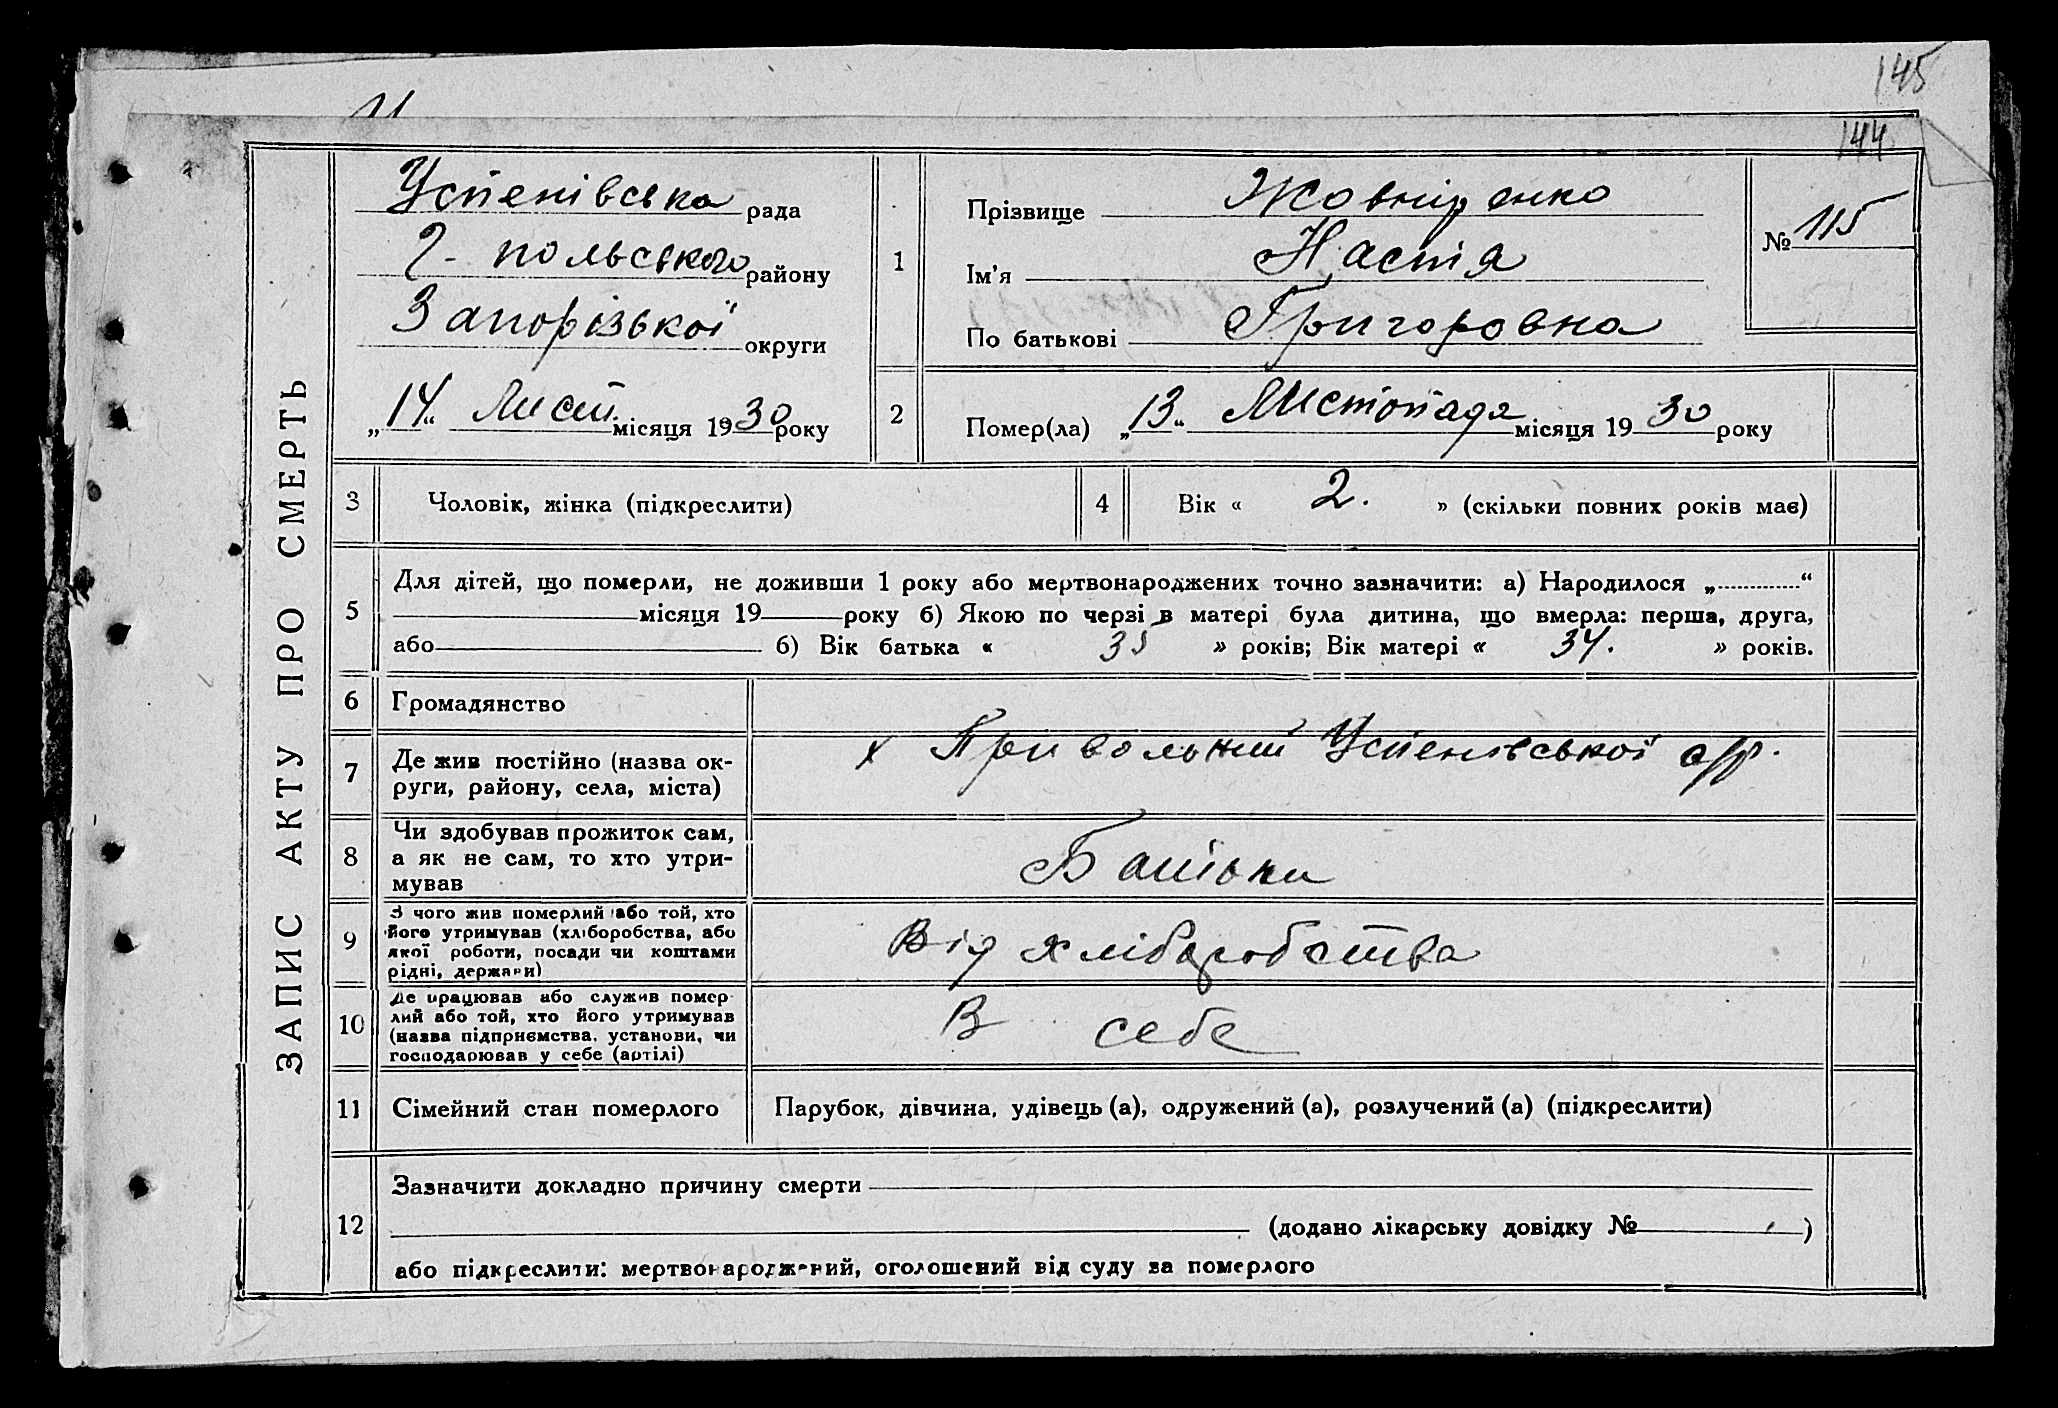 145
144
ЗАПИС АКТУ ПРО СМЕРТЬ
Успенівська рада
Г-польського району
Запорізької округи
„14“ Лист. місяця 1930 року
1
Прізвище Жовніренко
Ім'я Настія
По батькові Григоровна
№ 115
2
Помер(ла) „13“ Листопада місяця 1930 року
3 Чоловік, жінка (підкреслити)
4 Вік « 2. » (скільки повних років має)
5
Для дітей, що померли, не доживши 1 року або мертвонароджених точно зазначити: а) Народилося „ “
місяця 19 року б) Якою по черзі в матері була дитина, що вмерла: перша, друга,
або б) Вік батька « 35 » років; Вік матері « 34. » років.
6 Громадянство
7 Де жив постійно (назва ок-
руги, району, села, міста)
х Привольний Успенівської с/р.
8 Чи здобував прожиток сам,
а як не сам, то хто утри-
мував
Батьки
9 З чого жив померлий або той, хто
його утримував (хліборобства, або
якої роботи, посади чи коштами
рідні, держави)
Від хліборобства
10 Де працював або служив помер-
лий або той, хто його утримував
(назва підприємства, установи, чи
господарював у себе (артілі)
В себе
11 Сімейний стан померлого
Парубок, дівчина, удівець (а), одружений (а), розлучений (а) (підкреслити)
12
Зазначити докладно причину смерти
(додано лікарську довідку № )
або підкреслити: мертвонароджений, оголошений від суду за померлого